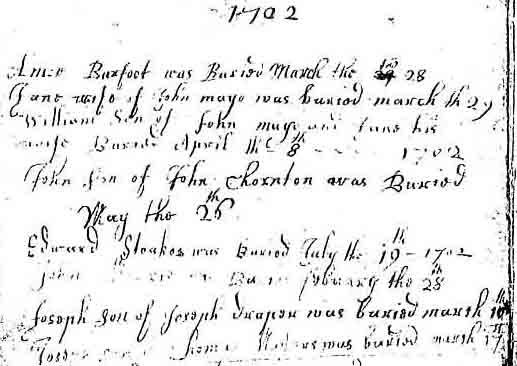 1702
Amee Barfoot was Buried March the 28
Jane wife of John mayo was buried march th 29
William Son of John mayo and Jane his
wife Buried April the 8th 1702
John Son of John Thornton was Buried
May the 26th
Edward Stoakes was Buried July the 19th - 1702
John february the 28th
Joseph Son of Joseph draper was buried march 10th
was buried march 17th